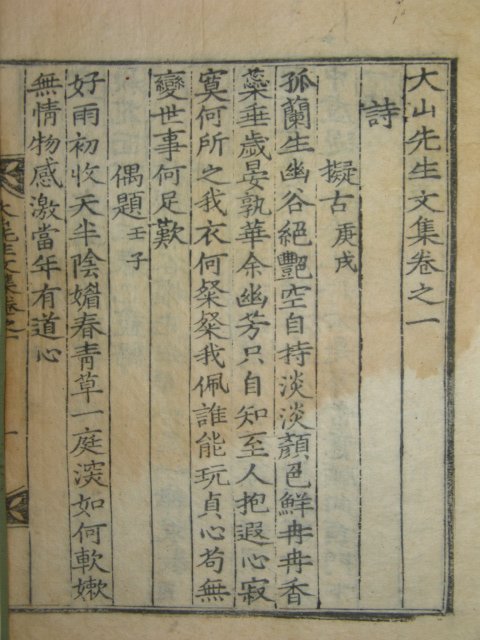 大山先生文集卷之一
詩
擬古 庚戌
孤蘭生幽谷絕艷空自持淡淡顔色鮮冉冉香
蘂垂歲晏孰華余幽芳只自知至人抱遐心寂
寞何所之我衣何粲粲我佩誰能玩貞心苟無
變世事何足歎
偶題 壬子
好雨初收天半陰媚春青草一庭深如何軟嫰
無情物感激當年有道心